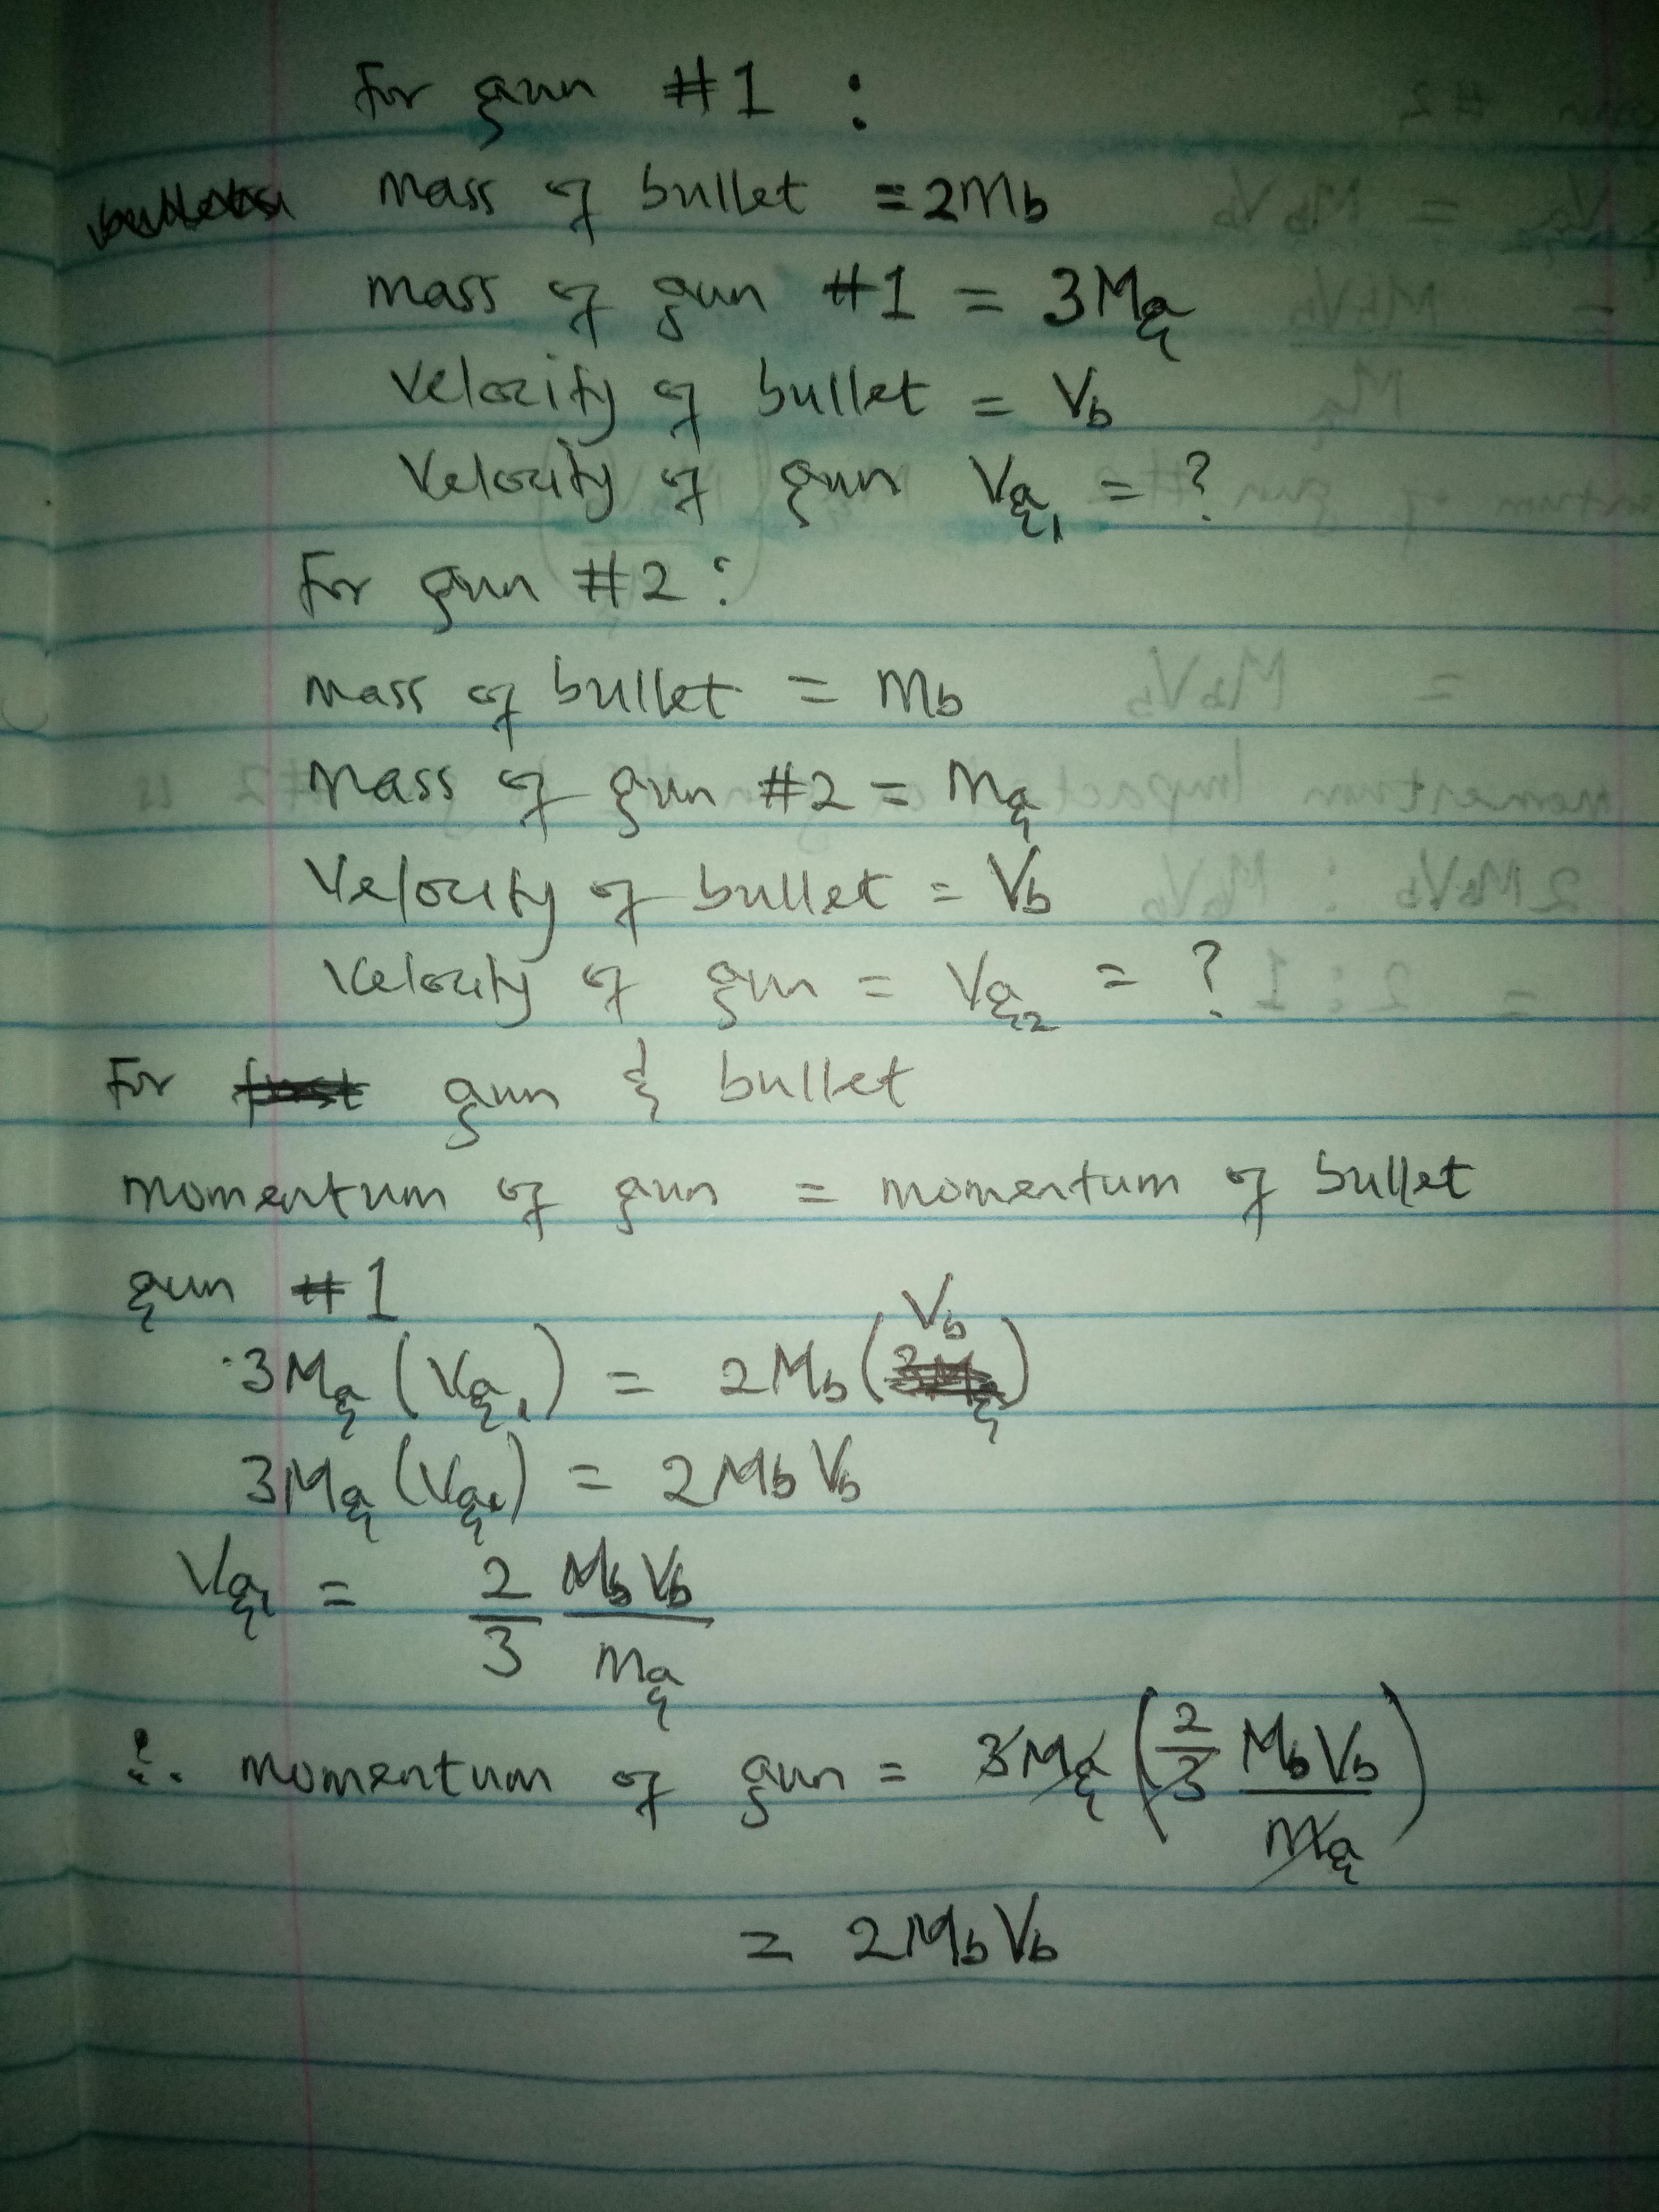 For gun #1 :
mass of bullet = 2Mb
mass of gun #1 = 3Mg
Velocity of bullet = Vb
Velocity of gun Vg1 = ?
For gun #2 :
mass of bullet = Mb
Mass of gun #2 = Mg
Velocity of bullet = Vb
Velocity of gun = Vg2 = ?
For gun & bullet
momentum of gun = momentum of bullet
gun #1
3Mg (Vg1) = 2Mb (Vb)
3Mg (Vg1) = 2Mb Vb
Vg1 = 2/3 MbVb/mg
∴ momentum of gun = 3Mg (2/3 MbVb/mg)
= 2MbVb